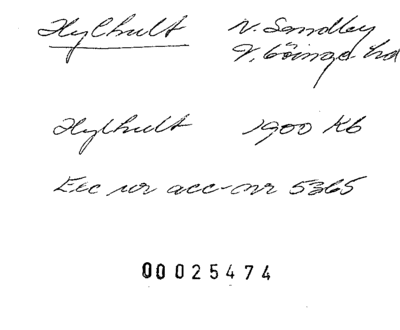 Hylhult N. Sandby
V. Göinge hd
Hylhult 1900 Kb
Exc ur acc-nr 5365
00025474